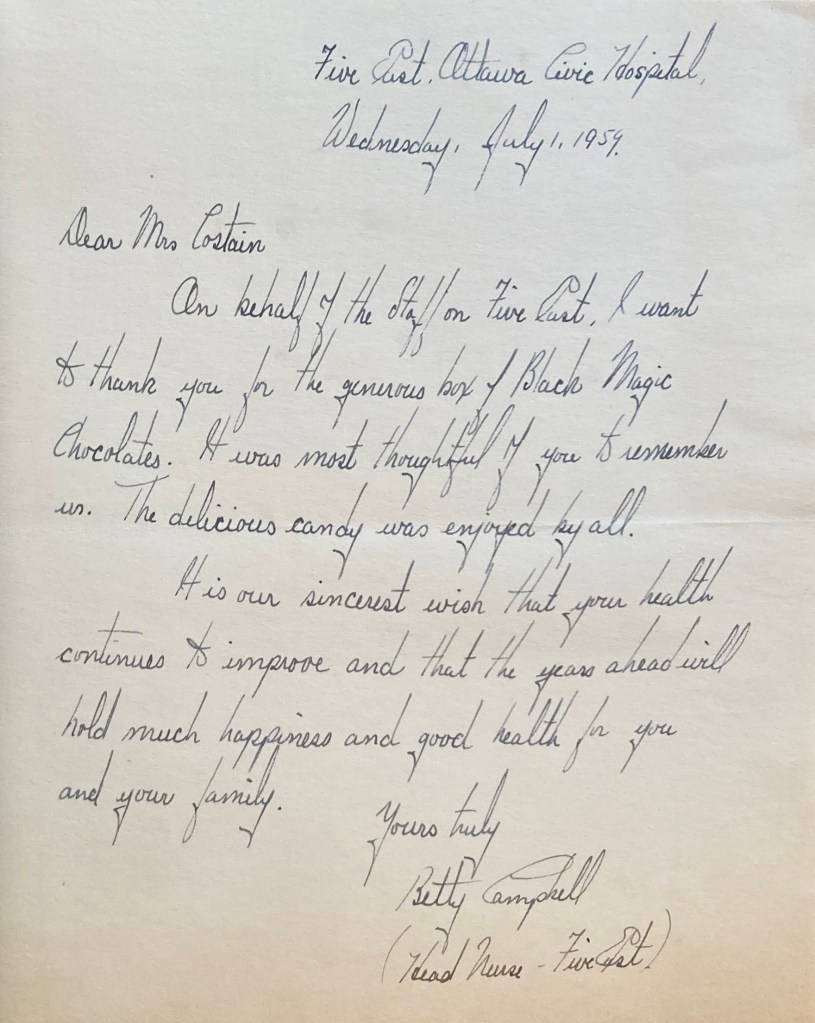 Five East, Ottawa Civic Hospital,
Wednesday, July 1, 1959.
Dear Mrs Costain
On behalf of the Staff on Five East, I want
to thank you for the generous box of Black Magic
Chocolates. It was most thoughtful of you to remember
us. The delicious candy was enjoyed by all.
It is our sincerest wish that your health
continues to improve and that the years ahead will
hold much happiness and good health for you
and your family.
Yours truly
Betty Campbell
(Head Nurse - Five East)